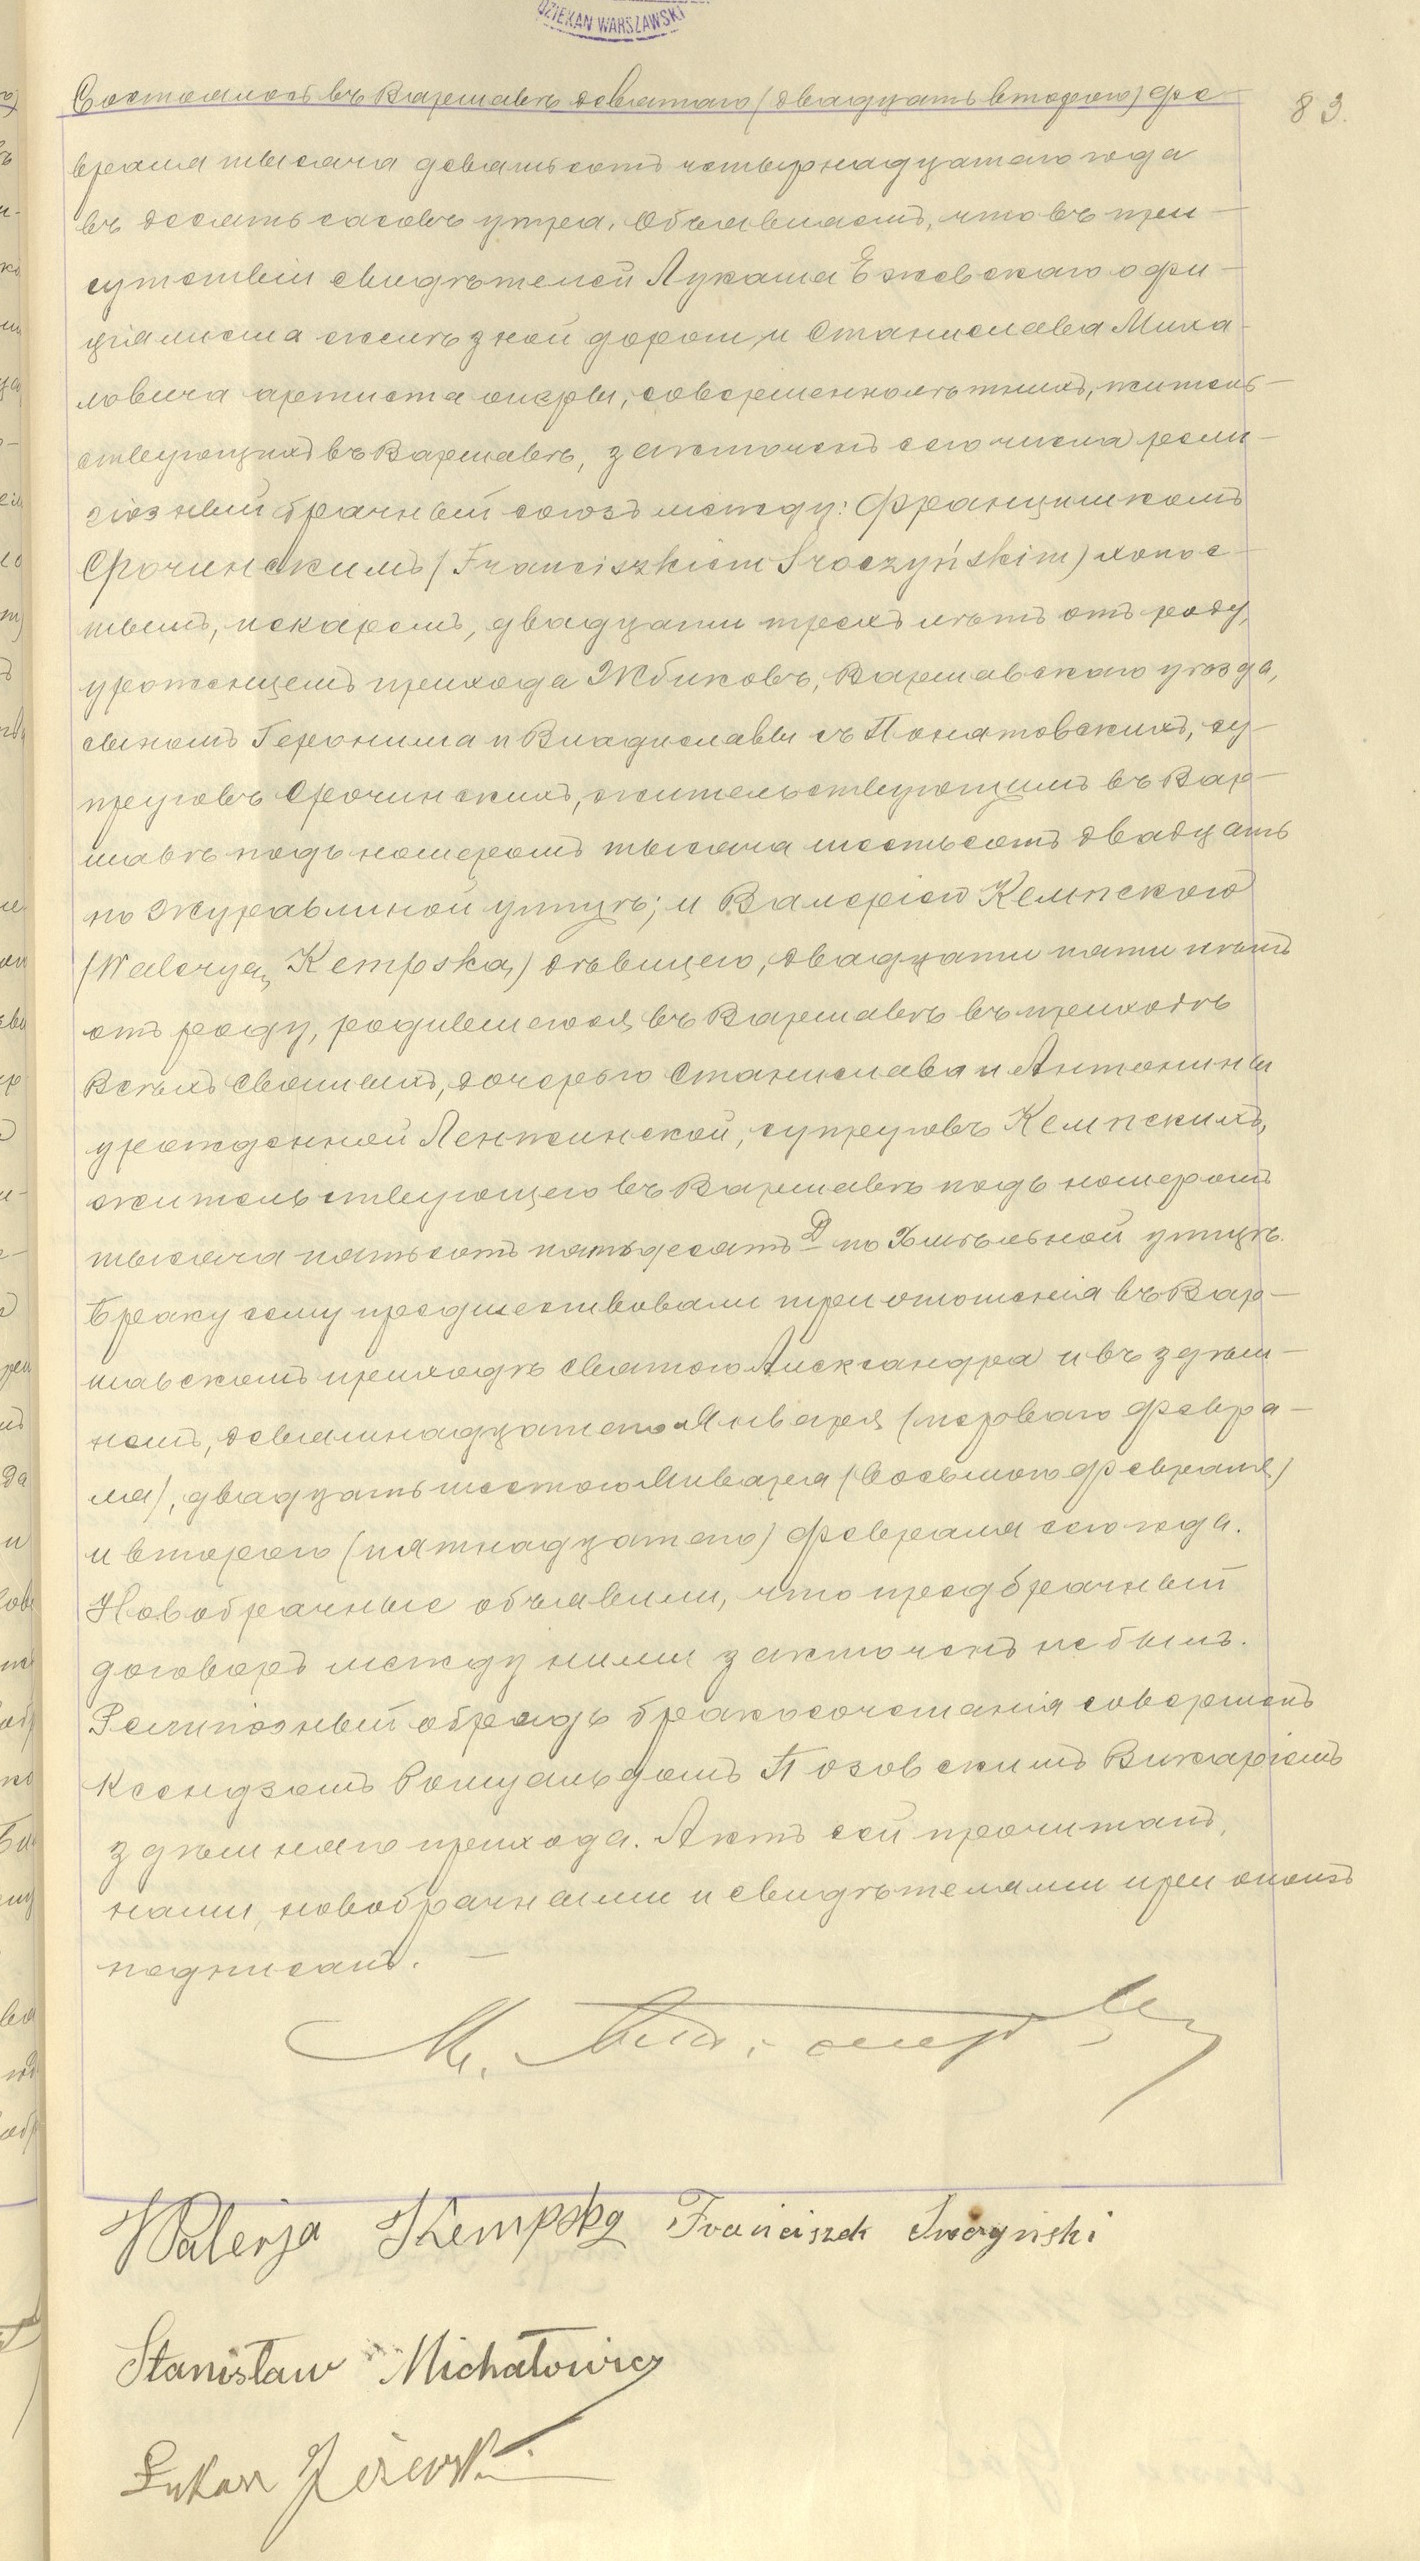 DZIEKAN WARSZAWSKI
83.
Состоялось въ Варшавѣ девятаго (двадцать втораго) Фе-
враля тысяча девятьсотъ четырнадцатаго года
въ десять часовъ утра. Объявляемъ, что въ при-
сутствіи свидѣтелей Лукаша Ежевскаго офи-
ціалиста желѣзной дороги, и Станислава Миха-
ловича артиста оперы, совершеннолѣтнихъ, житель-
ствующихъ въ Варшавѣ, заключенъ сего числа рели-
гіозный брачный союзъ между: Францишкомъ
Срочинскимъ (Franciszkiem Sroczyńskim) холос-
тымъ, пекаремъ, двадцати трехъ лѣтъ отъ роду,
уроженцемъ прихода Жбиковъ, Варшавскаго уѣзда,
сыномъ Геронима и Владиславы съ Понятовскихъ, су-
пруговъ Срочинскихъ, жительствующимъ въ Вар-
шавѣ подъ номеромъ тысяча шестьсотъ двадцать
по Журавлиной улицѣ; и Валеріею Кемпскою
(Waleryą Kempską) дѣвицею, двадцати пяти лѣтъ
отъ роду, родившеюся въ Варшавѣ въ приходѣ
Всѣхъ Святыхъ, дочерью Станислава и Антонины
урожденной Ленжинской, супруговъ Кемпскихъ,
жительствующею въ Варшавѣ подъ номеромъ
тысяча пятьсотъ пятьдесятъ Д по Хмѣльной улицѣ.
Браку сему предшествовали три оглашенія въ Вар-
шавскомъ приходѣ Святого Александра и въ здѣш-
немъ, девятнадцатаго Января (перваго Февра-
ля), двадцать шестого Января (восьмого Февраля)
и второго (пятнадцатаго) Февраля сего года.
Новобрачные объявили, что предбрачный
договоръ между ними заключенъ не былъ.
Религіозный обрядъ бракосочетанія совершенъ
Ксендзомъ Ромуальдомъ Позовскимъ Викаріемъ
здѣшняго прихода. Актъ сей прочитанъ,
нами, новобрачными и свидѣтелями при ономъ
подписанъ. —
Walerja Kempska Franciszek Sroczyński
Stanisław Michałowicz
Łukasz Jeżewski